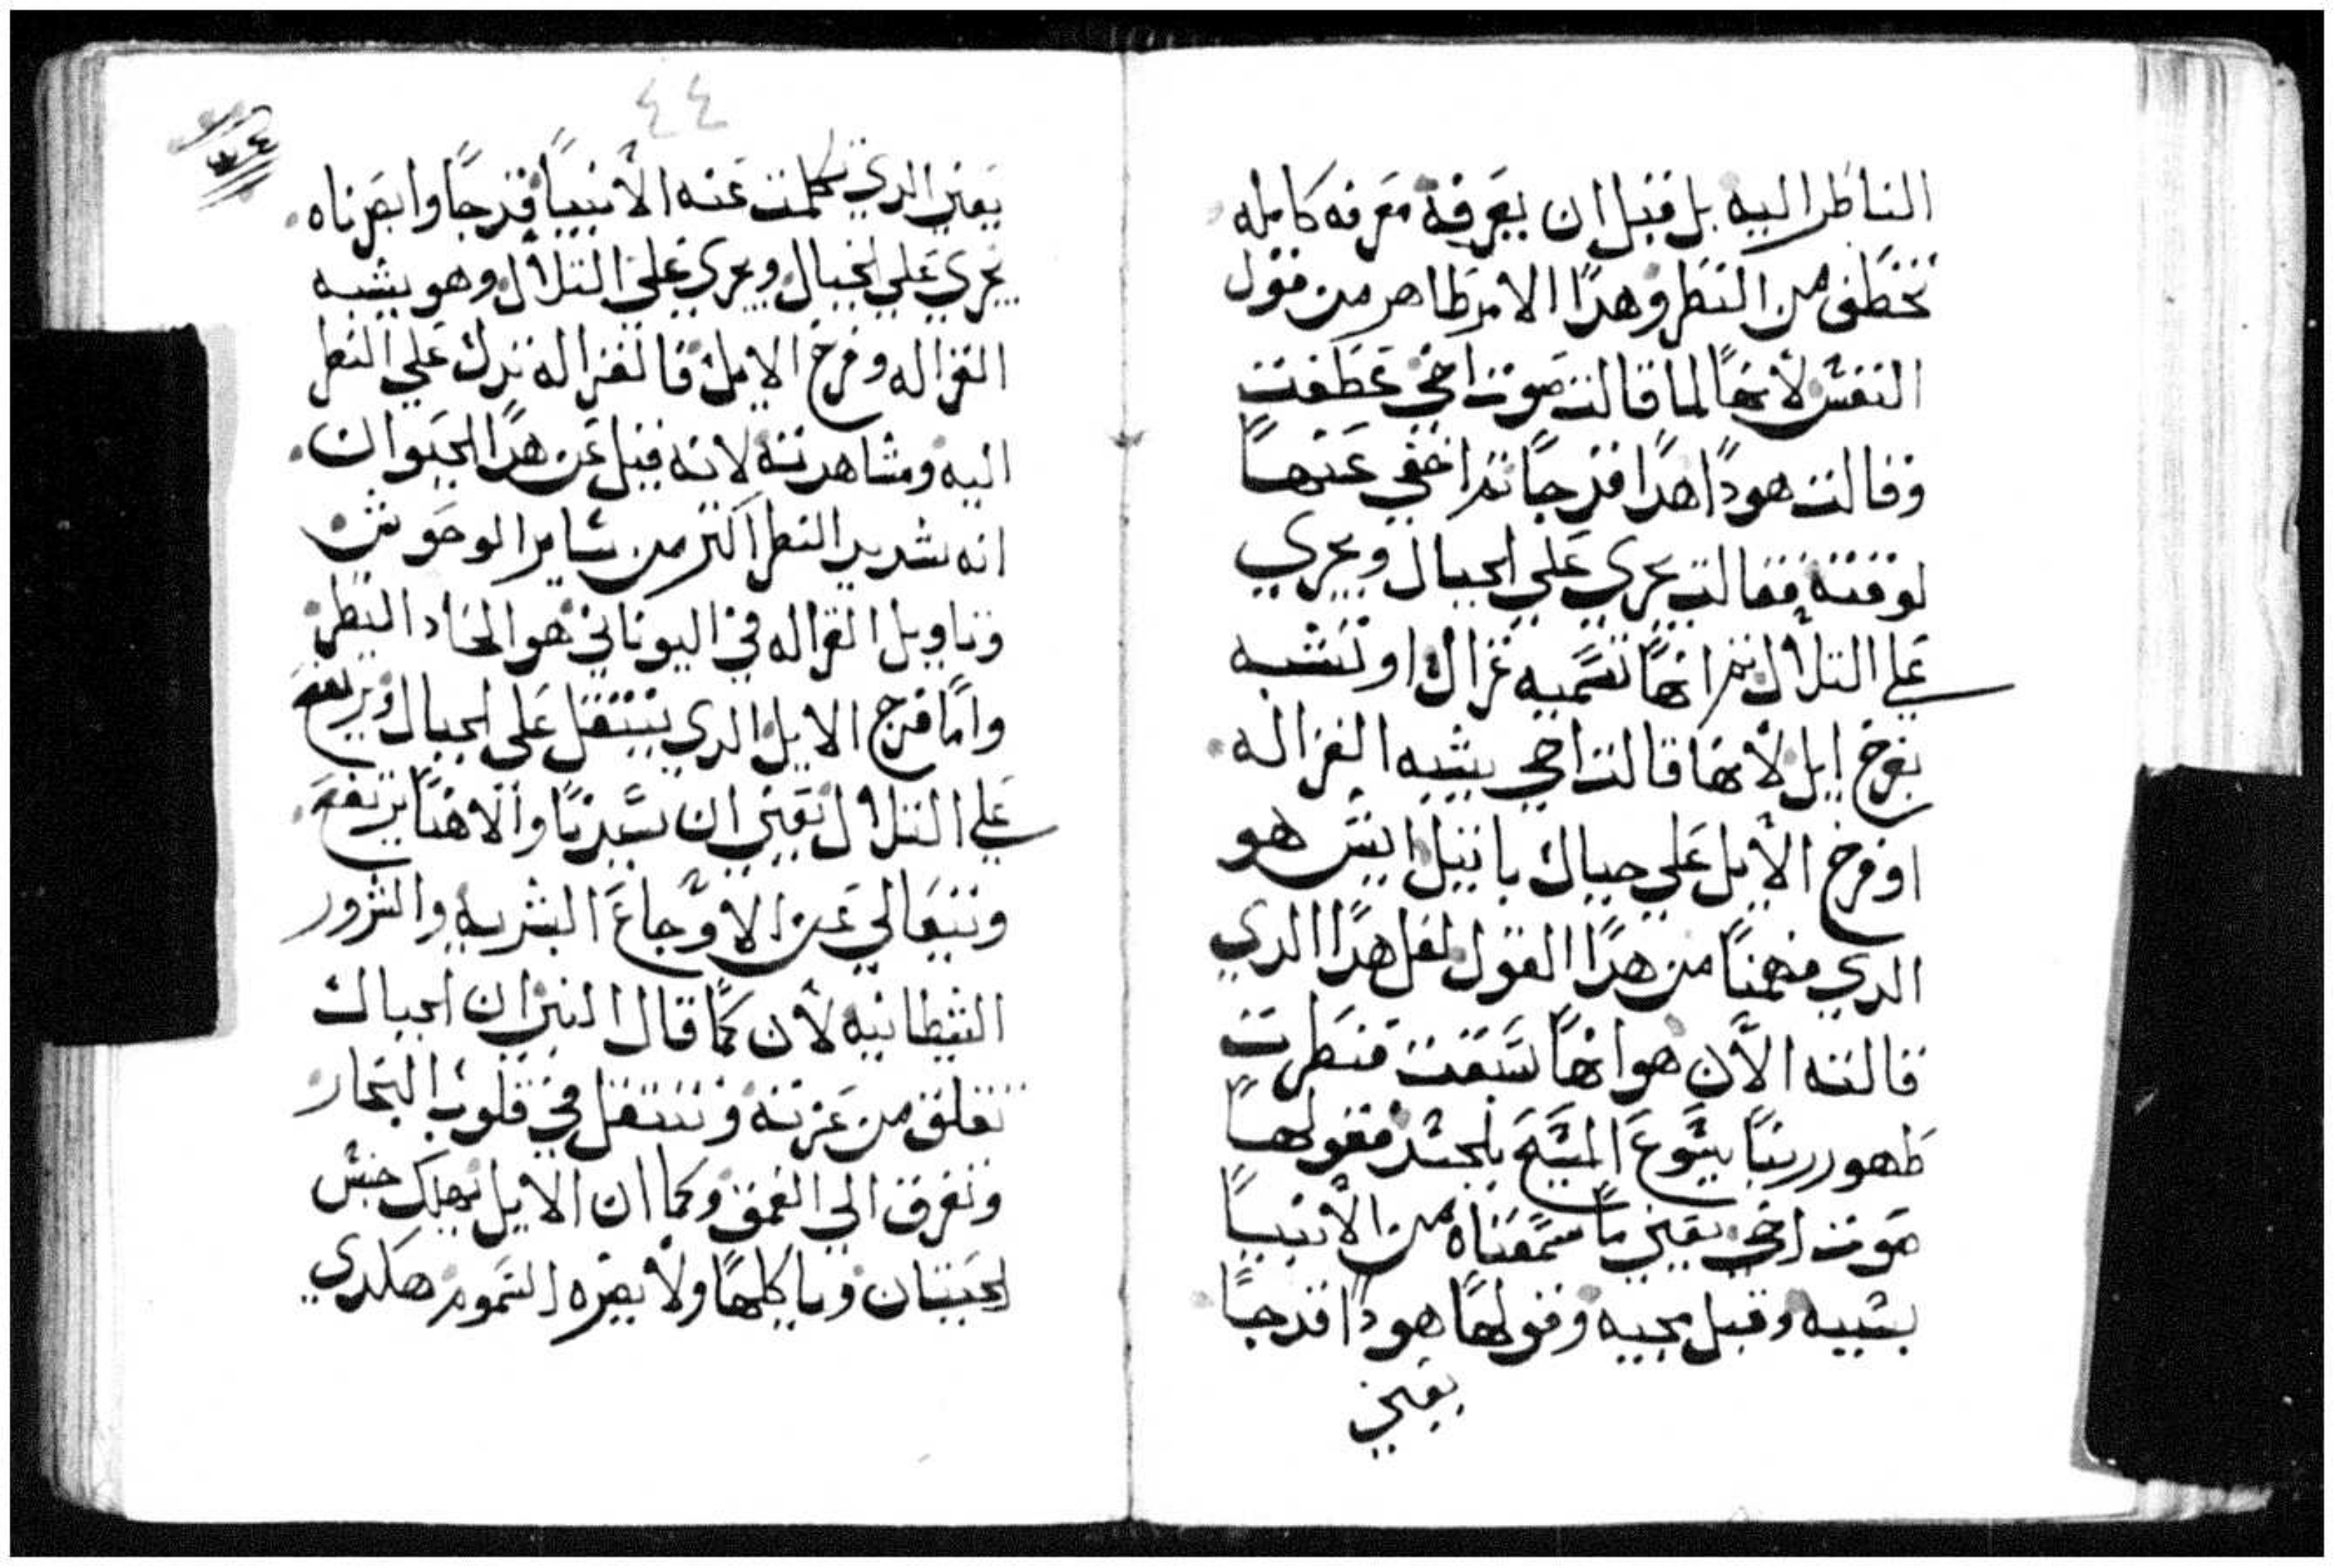 الناظر اليه بل قبل ان يعرفة معرفه كامله
تخطف من النظر وهدا الامر طاهر من قول
النفس لأنها لما قالت صوت اخي عطفت
وقالت هودا هدا قد جا تم اخفي عنها
لوقته فقالت يجري علي الجبال ويجري
علي التلال تم انها تسميه غزال او تشبه
بفرخ ايل لأنها قالت اخي يشبه الغزاله
او فرخ الأيل علي جبال باتيل ايش هو
الدي فهمنا من هدا القول لعل هدا الدي
قالته الأن هو انها سبقت فنظرت
ظهور ربنا يسوع المسيح بلجسد فقولها
صوت اخي يعني ما سمعناه من الأنبيا
بسببه وقبل مجيه وقولها هودا قد جا
يعني
٤٤
يعني الدي تكلمت عنه الأنبيا قد جا وابصرناه
يجري علي الجبال ويجري علي التلال وهو يشبه
الغزاله وفرخ الايل فالغزاله تدل علي النظر
اليه ومشاهدته لانه قيل عن هدا الحيوان
انه شديد النظر اكتر من ساير الوحوش
وتاويل الغزاله في اليوناني هو الحاد النظر
واما فرخ الايل الدي ينتقل علي الجبال ويرتفع
علي التلال يعني ان سيدنا والاهنا يرتفع
ويتعالي عن الأوجاع البشريه والشرور
الشيطانيه لأن كما قال النبي ان الجبال
تقلق من عزته وتنتقل في قلوب البحار
وتغرق الي العمق وكما ان الايل يهلك جنس
الحيتان وياكلها ولا يضره السموم هكدي